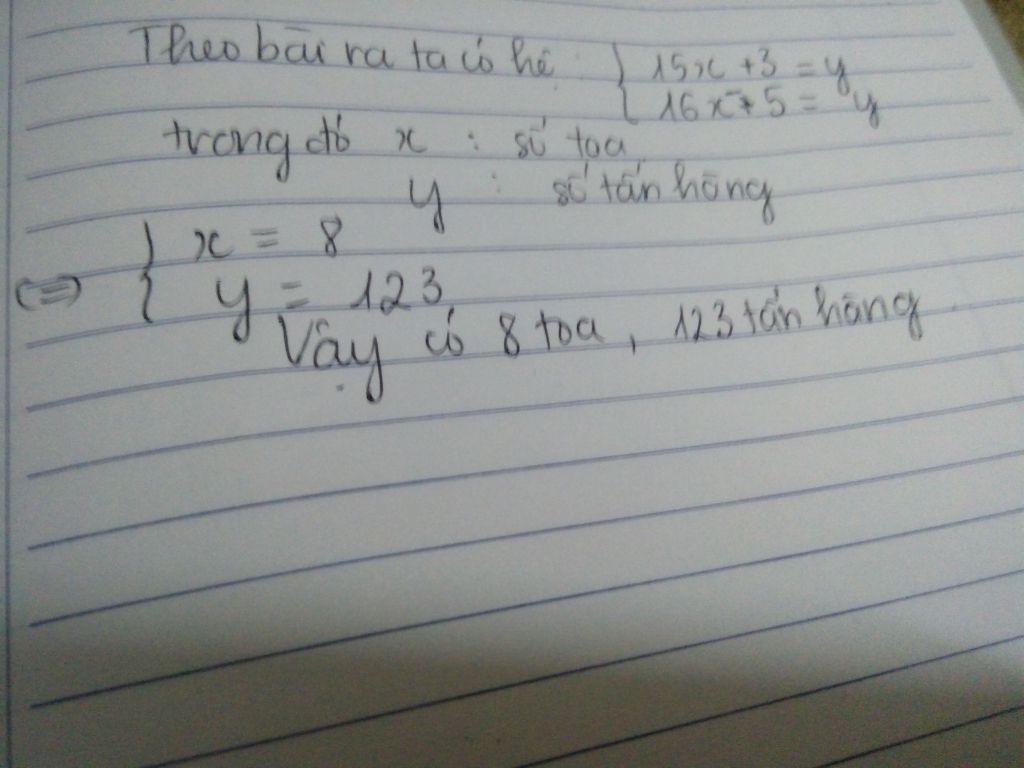 Theo bài ra ta có hệ { 15x + 3 = y
16x - 5 = y
trong đó x : số toa
y : số tấn hàng
<=> { x = 8
y = 123
Vậy có 8 toa, 123 tấn hàng.